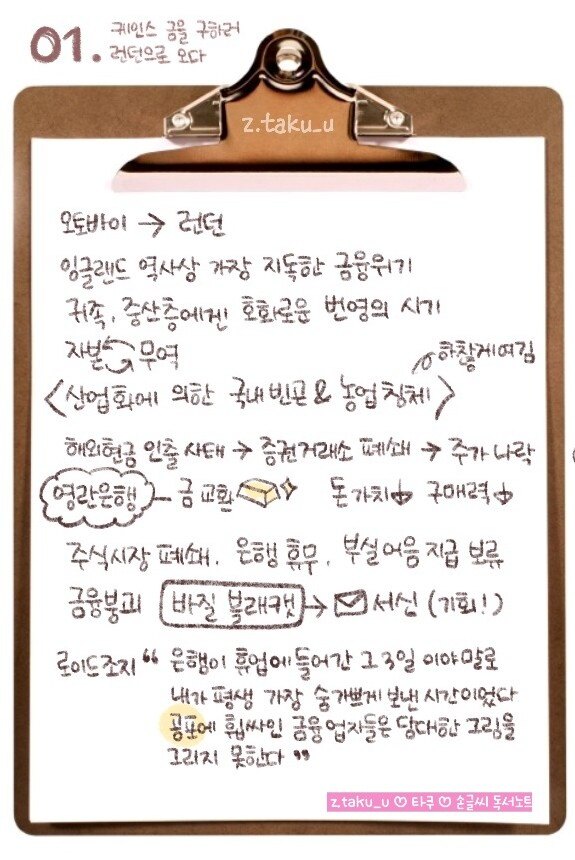 01. 케인스 금을 구하러
런던으로 오다
z.taku_u
오토바이 → 런던
잉글랜드 역사상 가장 지독한 금융위기
귀족, 중산층에겐 호화로운 번영의 시기
자본 무역
하찮게여김
<산업화에 의한 국내빈곤 & 농업침체>
해외현금 인출사태 → 증권거래소 폐쇄 → 주가 나락
영란은행 - 금 교환 돈가치↓ 구매력↓
주식시장 폐쇄, 은행 휴무, 부실어음 지급 보류
금융붕괴 바질 블래캣 → 서신 (기회!)
로이드조지 “ 은행이 휴업에 들어간 그 3일 이야말로
내가 평생 가장 숨가쁘게 보낸 시간이었다
공포에 휩싸인 금융업자들은 담대한 그림을
그리지 못한다 ”
z.taku_u ♡ 타쿠 ♡ 손글씨 독서노트